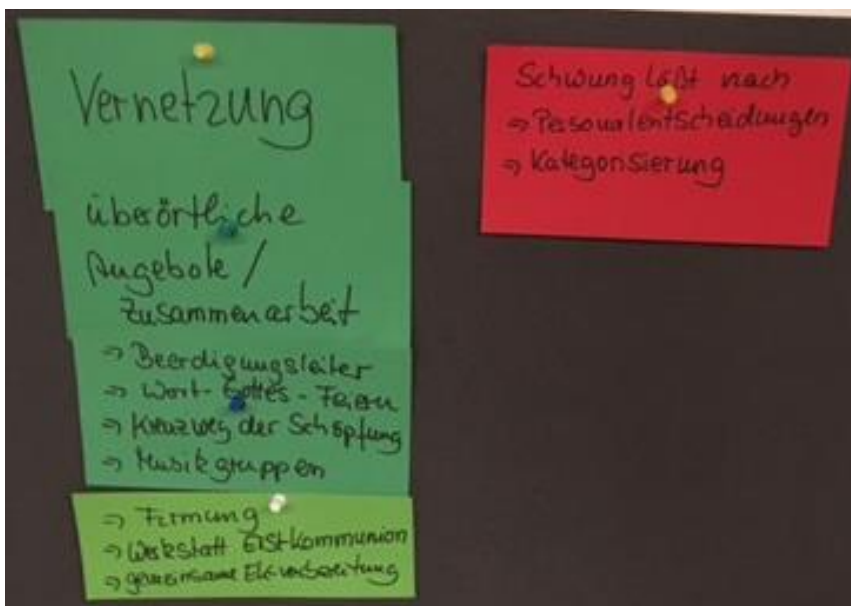 Vernetzung
überörtliche
Angebote /
Zusammenarbeit
=> Beerdigungsleiter
=> Wort-Gottes-Feiern
=> Kreuzweg der Schöpfung
=> Musikgruppen
=> Firmung
=> Werkstatt Erstkommunion
=> gemeinsame EK-vorbereitung
Schwung läßt nach
=> Personalentscheidungen
=> Kategorisierung